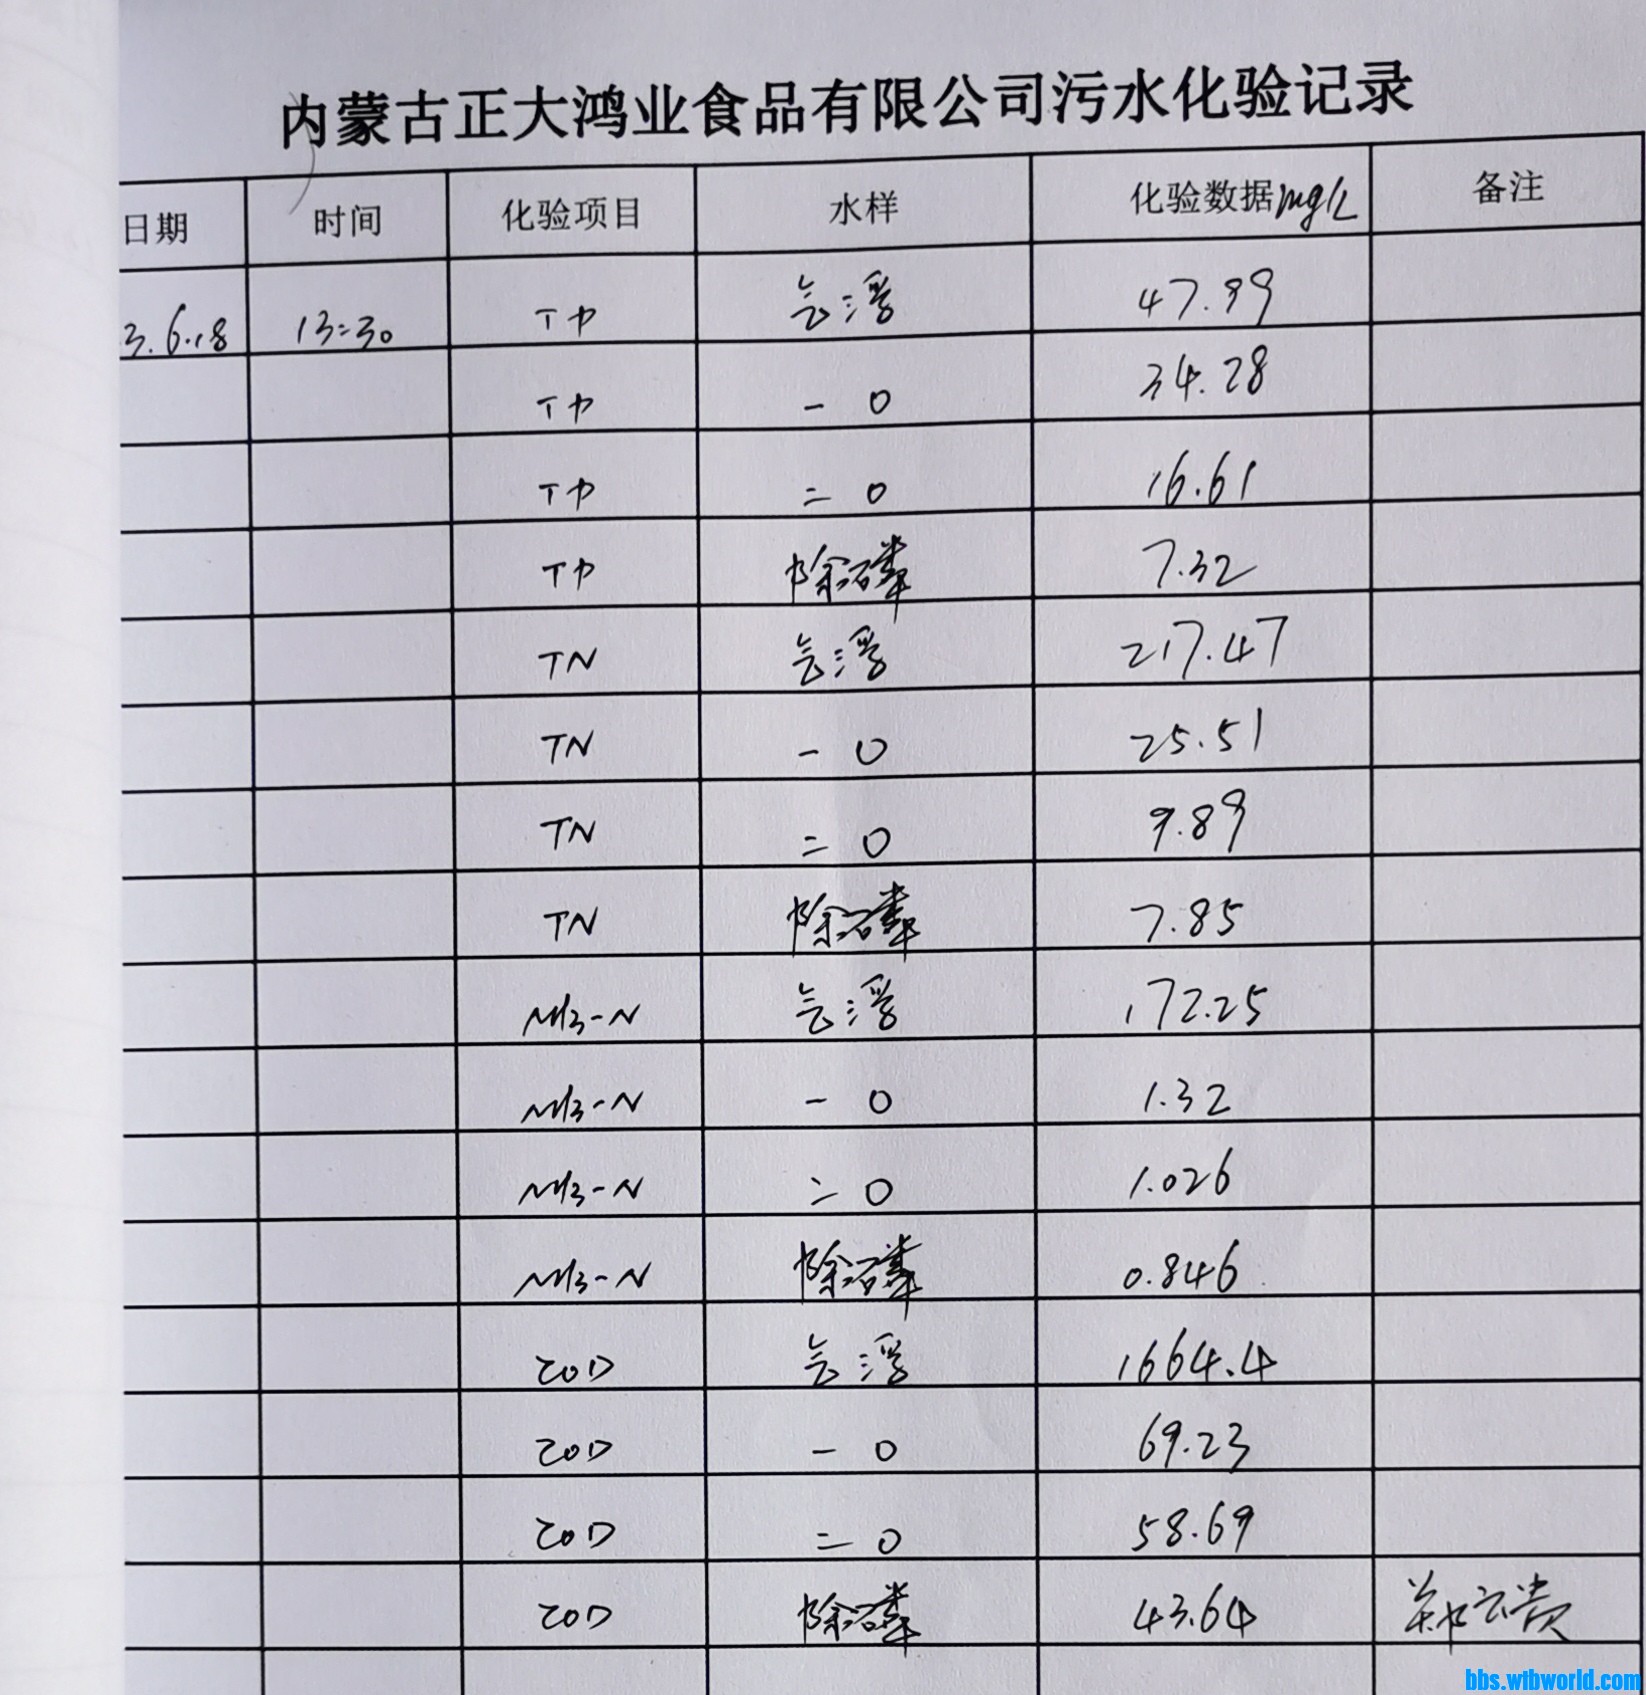 内蒙古正大鸿业食品有限公司污水化验记录
日期 时间 化验项目 水样 化验数据mg/L 备注
3.6.18 13:30 TP 气浮 47.99
TP 一 O 34.28
TP 二 O 16.61
TP 除磷 7.32
TN 气浮 217.47
TN 一 O 25.51
TN 二 O 9.89
TN 除磷 7.85
NH3-N 气浮 172.25
NH3-N 一 O 1.32
NH3-N 二 O 1.026
NH3-N 除磷 0.846
COD 气浮 1664.4
COD 一 O 69.23
COD 二 O 58.69
COD 除磷 43.64 郑云贵
bbs.wtbworld.com